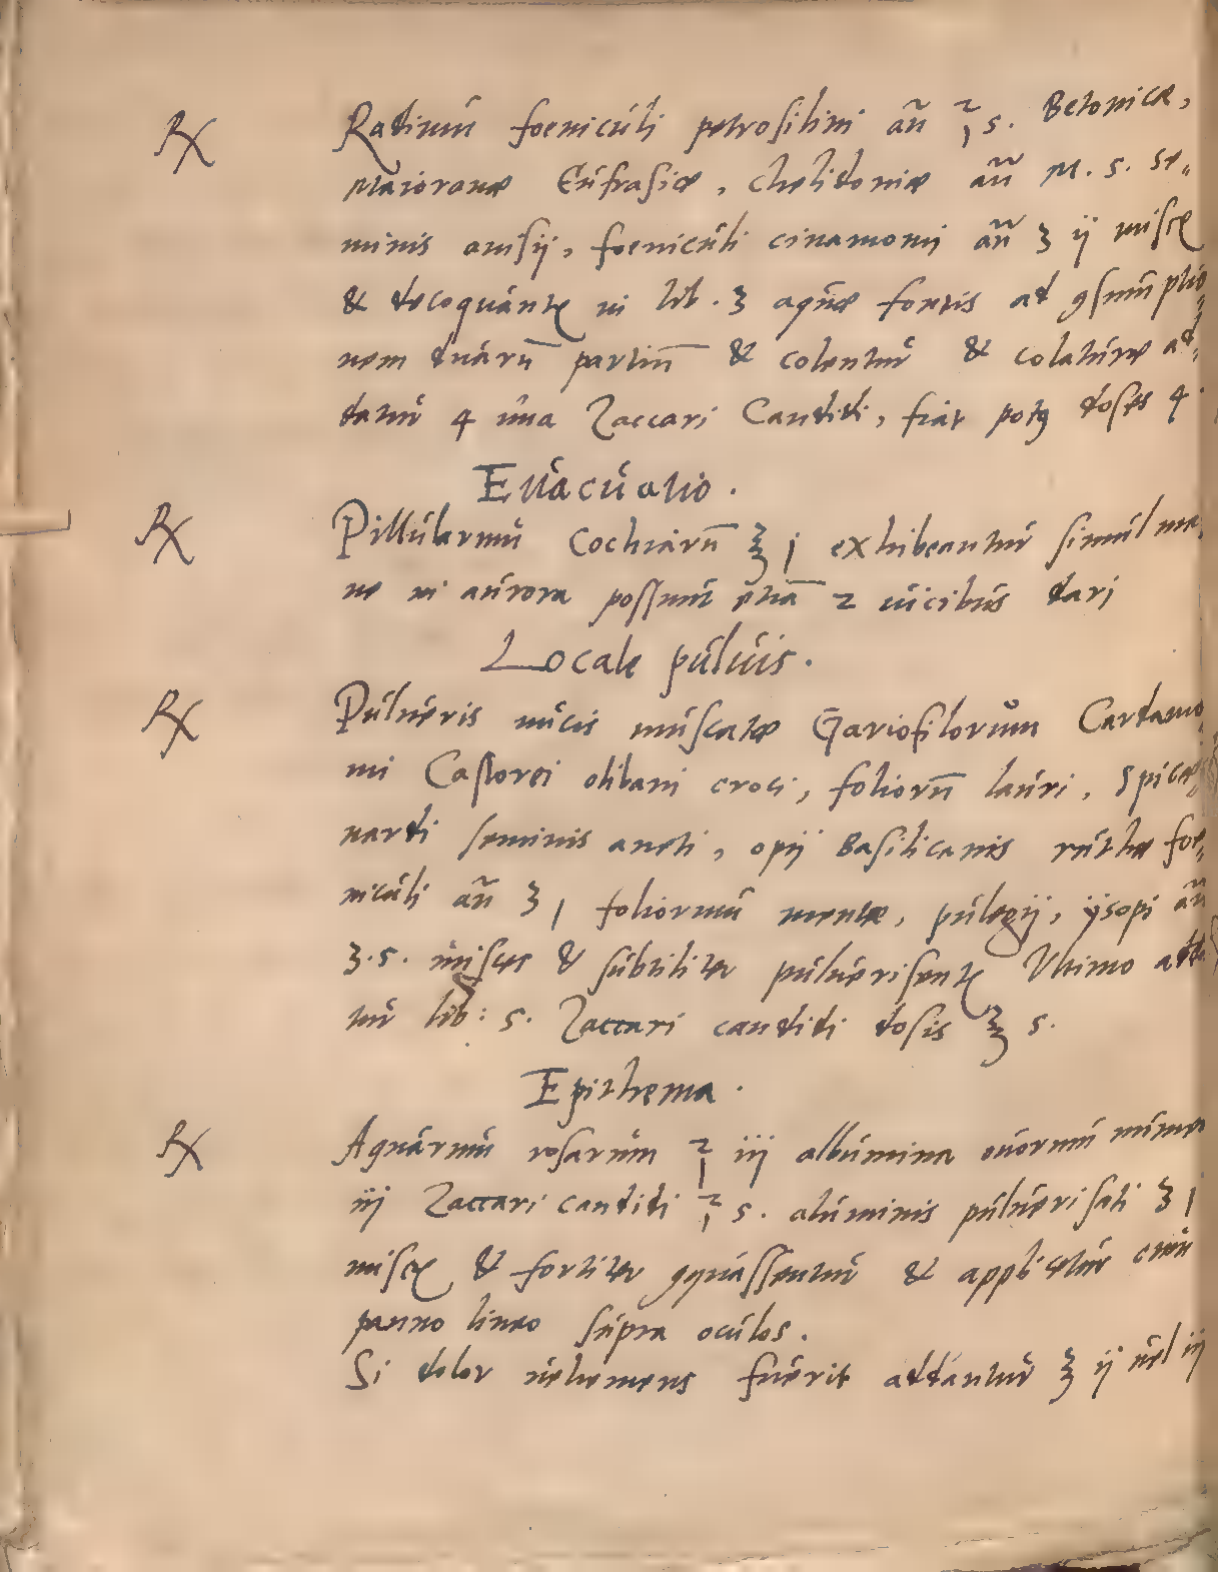 ℞ Radicum foeniculi petrosilini añ ℥ s. Betonicæ,
Maioranæ Eufrasiæ, chelidoniæ añ M. s. se„
minis anisij, foeniculi cinamomi añ ʒ ij misce
& decoquant in lib. 3 aquæ fontis ad 9sumptio„
nem duarū partiū & colentur & colaturæ ad„
datur 4 una Zaccari Candidi, fiat pot9 doses 4.
Evacuatio.
℞ Pillularum Cochiarū ℥ j exhibeantur simul ma„
ne in aurora possunt etiā 2 vicibus dari
Locale pulvis.
℞ Pulveris nucis muscatæ Gariofilorum Cardamo
mi Castorei olibani croci, foliorū lauri, spicæ„
nardi seminis aneti, opij Basilicanis ruthæ foe„
niculi añ ʒ j foliorum mentæ, pulegij, ysopi añ
ʒ. s. misces & subtiliter pulverisent Ultimo adda
tur lib: s. Zaccari candidi dosis ℥ s.
Epithema.
℞ Aquarum rosarum ℥ iij albumina ovorum numero
iij Zaccari candidi ℥ s. aluminis pulverisati ʒ j
misce & fortiter 9quassentur & applicetur cum
panno lineo supra oculos.
Si dolor vehemens fuerit addantur ℥ ij vel iij